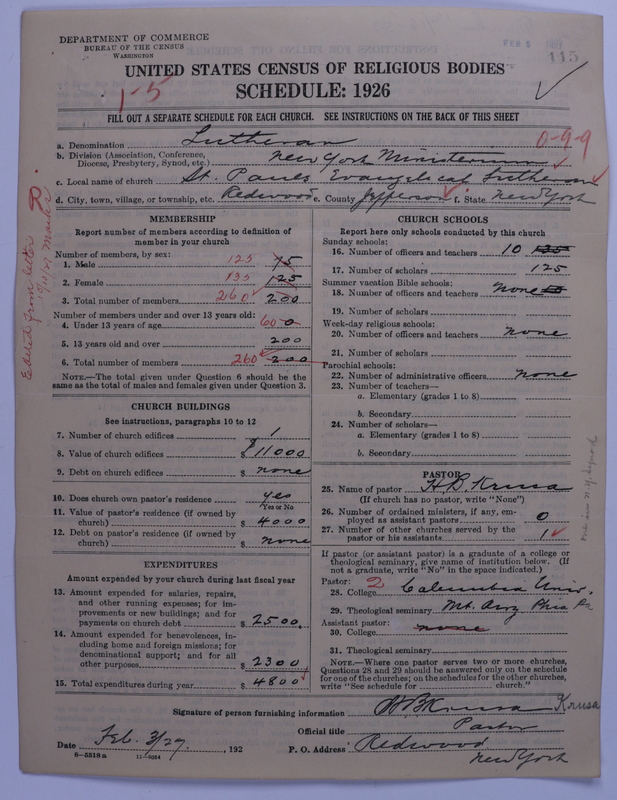 DEPARTMENT OF COMMERCE
BUREAU OF THE CENSUS
WASHINGTON
FEB 5
115
UNITED STATES CENSUS OF RELIGIOUS BODIES
SCHEDULE: 1926
1-5
FILL OUT A SEPARATE SCHEDULE FOR EACH CHURCH. SEE INSTRUCTIONS ON THE BACK OF THIS SHEET
a. Denomination Lutheran 0-9-9
b. Division (Association, Conference, Diocese, Presbytery, Synod, etc.) New York Ministerium
c. Local name of church St. Paul's Evangelical Lutheran
d. City, town, village, or township, etc. Redwood e. County Jefferson f. State New York
MEMBERSHIP
Report number of members according to definition of
member in your church
Number of members, by sex:
1. Male 125 75
2. Female 135 125
3. Total number of members 260 200
Number of members under and over 13 years old:
4. Under 13 years of age 60 0
5. 13 years old and over 200
6. Total number of members 260 200
NOTE.—The total given under Question 6 should be the
same as the total of males and females given under Question 3.
CHURCH BUILDINGS
See instructions, paragraphs 10 to 12
7. Number of church edifices 1
8. Value of church edifices $ 11000
9. Debt on church edifices $ none
10. Does church own pastor's residence yes
Yes or No
11. Value of pastor's residence (if owned by
church) $ 4000
12. Debt on pastor's residence (if owned by
church) $ none
EXPENDITURES
Amount expended by your church during last fiscal year
13. Amount expended for salaries, repairs,
and other running expenses; for im-
provements or new buildings; and for
payments on church debt $ 2500.
14. Amount expended for benevolences, in-
cluding home and foreign missions; for
denominational support; and for all
other purposes $ 2300
15. Total expenditures during year $ 4800
CHURCH SCHOOLS
Report here only schools conducted by this church
Sunday schools:
16. Number of officers and teachers 10
17. Number of scholars 125
Summer vacation Bible schools:
18. Number of officers and teachers none
19. Number of scholars
Week-day religious schools:
20. Number of officers and teachers none
21. Number of scholars
Parochial schools:
22. Number of administrative officers none
23. Number of teachers—
a. Elementary (grades 1 to 8)
b. Secondary
24. Number of scholars—
a. Elementary (grades 1 to 8)
b. Secondary
PASTOR
25. Name of pastor H. B. Krusa
(If church has no pastor, write "None")
26. Number of ordained ministers, if any, em-
ployed as assistant pastors 0
27. Number of other churches served by the
pastor or his assistants 1
If pastor (or assistant pastor) is a graduate of a college or
theological seminary, give name of institution below. (If
not a graduate, write "No" in the space indicated.)
Pastor: 2
28. College Columbia Univ.
29. Theological seminary Mt. Airy Phila Pa
Assistant pastor:
30. College none
31. Theological seminary
NOTE.—Where one pastor serves two or more churches,
Questions 28 and 29 should be answered only on the schedule
for one of the churches; on the schedules for the other churches,
write "See schedule for church."
Signature of person furnishing information H B Krusa Krusa
Official title Pastor
Date Feb. 3/27. , 192 P. O. Address Redwood
New York
8-5518a 11-9054